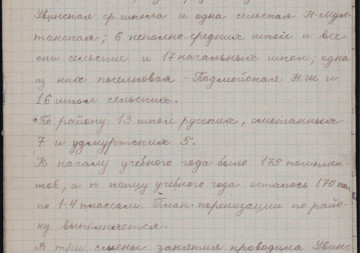 Увинская ср. школа и одна сельская Н-Мул-
танская; 6 неполно-средних школ и все
они сельские и 17 начальных школ; одна
из них поселковая - Подмойская Н.ш и
16 школ сельских.
По району 13 школ русских, смешанных
7 и удмуртских 5.
К началу учебного года было 175 комплек-
тов, а к концу учебного года осталось 170 ком,
по 1-4 классам. План коренизации по райо-
ну выполняется.
В три смены занятия проводила Увинс